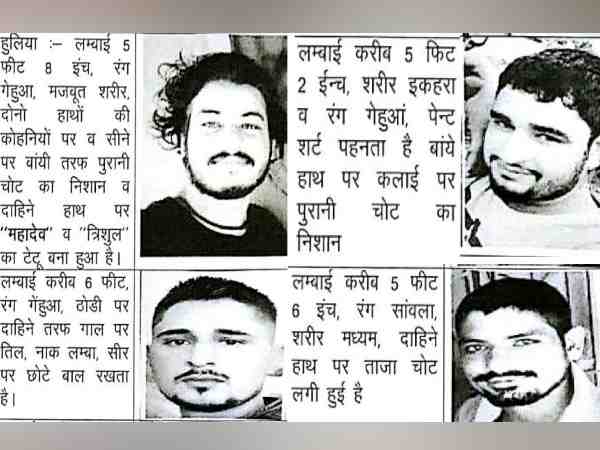 हुलिया :– लम्बाई 5
फीट 8 इंच, रंग
गेहुआ, मजबूत शरीर,
दोनो हाथों की
कोहनियों पर व सीने
पर बांयी तरफ पुरानी
चोट का निशान व
दाहिने हाथ पर
"महादेव" व "त्रिशुल"
का टेटू बना हुआ है।
लम्बाई करीब 5 फिट
2 ईन्च, शरीर इकहरा
व रंग गेहुआं, पेन्ट
शर्ट पहनता है बांये
हाथ पर कलाई पर
पुरानी चोट का
निशान
लम्बाई करीब 6 फीट,
रंग गेंहुआ, ठोडी पर
दाहिने तरफ गाल पर
तिल, नाक लम्बा, सीर
पर छोटे बाल रखता
है।
लम्बाई करीब 5 फीट
6 इंच, रंग सांवला,
शरीर मध्यम, दाहिने
हाथ पर ताजा चोट
लगी हुई है